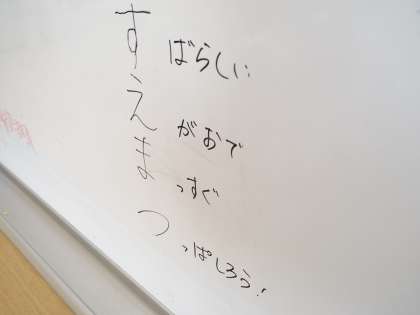 すばらしい
えがおで
まっすぐ
つっぱしろう!